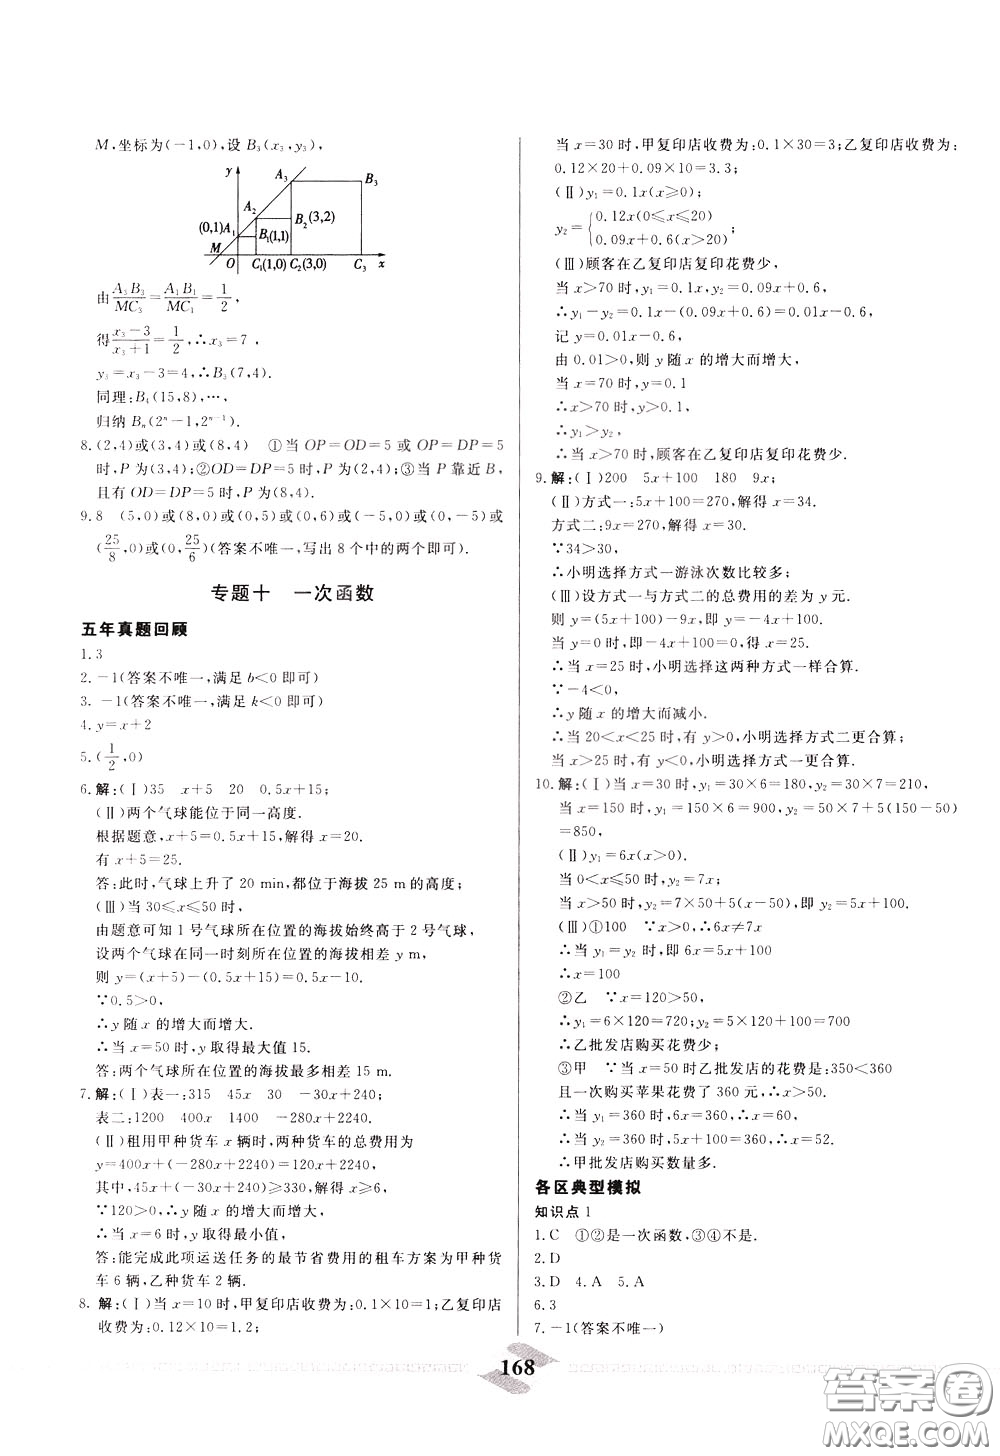 M,坐标为(-1,0),设 B₃(x₃,y₃),
y
A₃
B₃
A₂
B₂(3,2)
(0,1)A₁
B₁(1,1)
M
O C₁(1,0) C₂(3,0) C₃ x
由A₃B₃/MC₃=A₁B₁/MC₁=1/2,
得x₃-3/x₃+1=1/2,∴x₃=7,
y₃=x₃-3=4,∴B₃(7,4).
同理:B₄(15,8),…,
归纳 Bₙ(2ⁿ-1,2ⁿ⁻¹).
8.(2,4)或(3,4)或(8,4) ①当 OP=OD=5 或 OP=DP=5
时,P 为(3,4);②OD=DP=5 时,P 为(2,4);③当 P 靠近 B,
且有 OD=DP=5 时,P 为(8,4).
9.8 (5,0)或(8,0)或(0,5)或(0,6)或(-5,0)或(0,-5)或
(25/8,0)或(0,25/6)(答案不唯一,写出 8 个中的两个即可).
专题十 一次函数
五年真题回顾
1.3
2.-1(答案不唯一,满足 b<0 即可)
3.-1(答案不唯一,满足 k<0 即可)
4.y=x+2
5.(1/2,0)
6.解:(Ⅰ)35 x+5 20 0.5x+15;
(Ⅱ)两个气球能位于同一高度.
根据题意,x+5=0.5x+15,解得 x=20.
有 x+5=25.
答:此时,气球上升了 20 min,都位于海拔 25 m 的高度;
(Ⅲ)当 30≤x≤50 时,
由题意可知 1 号气球所在位置的海拔始终高于 2 号气球,
设两个气球在同一时刻所在位置的海拔相差 y m,
则 y=(x+5)-(0.5x+15)=0.5x-10.
∵0.5>0,
∴y 随 x 的增大而增大.
∴当 x=50 时,y 取得最大值 15.
答:两个气球所在位置的海拔最多相差 15 m.
7.解:(Ⅰ)表一:315 45x 30 -30x+240;
表二:1200 400x 1400 -280x+2240.
(Ⅱ)租用甲种货车 x 辆时,两种货车的总费用为
y=400x+(-280x+2240)=120x+2240,
其中,45x+(-30x+240)≥330,解得 x≥6,
∵120>0,∴y 随 x 的增大而增大.
∴当 x=6 时,y 取得最小值,
答:能完成此项运送任务的最节省费用的租车方案为甲种货
车 6 辆,乙种货车 2 辆.
8.解:(Ⅰ)当 x=10 时,甲复印店收费为:0.1×10=1;乙复印店
收费为:0.12×10=1.2;
当 x=30 时,甲复印店收费为:0.1×30=3;乙复印店收费为:
0.12×20+0.09×10=3.3;
(Ⅱ)y₁=0.1x(x≥0);
y₂={0.12x(0≤x≤20)
0.09x+0.6(x>20);
(Ⅲ)顾客在乙复印店复印花费少.
当 x>70 时,y₁=0.1x,y₂=0.09x+0.6,
∴y₁-y₂=0.1x-(0.09x+0.6)=0.01x-0.6,
记 y=0.01x-0.6,
由 0.01>0,则 y 随 x 的增大而增大,
当 x=70 时,y=0.1
∴x>70 时,y>0.1,
∴y₁>y₂,
∴当 x>70 时,顾客在乙复印店复印花费少.
9.解:(Ⅰ)200 5x+100 180 9x;
(Ⅱ)方式一:5x+100=270,解得 x=34.
方式二:9x=270,解得 x=30.
∵34>30,
∴小明选择方式一游泳次数比较多;
(Ⅲ)设方式一与方式二的总费用的差为 y 元.
则 y=(5x+100)-9x,即 y=-4x+100.
当 y=0 时,即-4x+100=0,得 x=25.
∴当 x=25 时,小明选择这两种方式一样合算.
∵-4<0,
∴y 随 x 的增大而减小.
∴当 20<x<25 时,有 y>0,小明选择方式二更合算;
当 x>25 时,有 y<0,小明选择方式一更合算.
10.解:(Ⅰ)当 x=30 时,y₁=30×6=180,y₂=30×7=210,
当 x=150 时,y₁=150×6=900,y₂=50×7+5(150-50)
=850,
(Ⅱ)y₁=6x(x>0).
当 0<x≤50 时,y₂=7x;
当 x>50 时,y₂=7×50+5(x-50),即 y₂=5x+100.
(Ⅲ)①100 ∵x>0,∴6x≠7x
∴当 y₁=y₂ 时,即 6x=5x+100
∴x=100
②乙 ∵x=120>50,
∴y₁=6×120=720;y₂=5×120+100=700
∴乙批发店购买花费少;
③甲 ∵当 x=50 时乙批发店的花费是:350<360
且一次购买苹果花费了 360 元,∴x>50.
∴当 y₁=360 时,6x=360,∴x=60,
∴当 y₂=360 时,5x+100=360,∴x=52.
∴甲批发店购买数量多.
各区典型模拟
知识点 1
1.C ①②是一次函数,③④不是.
2.D
3.D 4.A 5.A
6.3
7.-1(答案不唯一)
168
答案圈
MXQE.COM